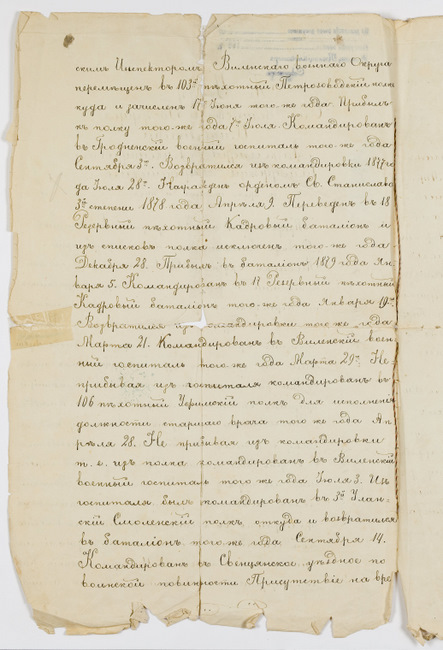 скимъ Инспекторомъ Виленскаго военнаго Округа
перемѣщенъ въ 103й пѣхотный Петрозаводскій полкъ
куда и зачисленъ 17 Іюня того-же года. Прибылъ
къ полку того-же года 7го Іюля. Командированъ
въ Гродненскій военный госпиталь того-же года
Сентября 3го. Возвратился изъ командировки 1877 го
да Іюля 28го. Награжденъ орденомъ Св. Станислава
3й степени 1878 года Апрѣля 9. Переведенъ въ 18
Резервный пѣхотный Кадровый баталіонъ и
изъ списковъ полка исключенъ того-же года
Декабря 28. Прибылъ въ баталіонъ 1879 года Ян
варя 5. Командированъ въ 17 Резервный пѣхотный
Кадровый баталіонъ того-же года Января 19го
Возвратился изъ командировки того-же года
Марта 21. Командированъ въ Виленскій воен
ный госпиталь того-же года Марта 29го. Не
прибывая изъ госпиталя командированъ въ
106 пѣхотный Уфимскій полкъ для исполненія
должности старшаго врача того же года Ап
рѣля 28. Не прибывая изъ командировки
т. е. изъ полка командированъ въ Виленскій
военный госпиталь того-же года Іюля 3. Изъ
госпиталя былъ командированъ въ 3й Улан-
скій Смоленскій полкъ, откуда и возвратился
въ баталіонъ того-же года Сентября 14.
Командированъ въ Свенцянское уѣздное по
воинской повинности Присутствіе на вре